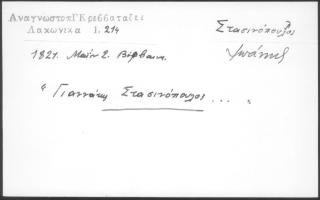 ΑναγνωστοπΓΚρεββαταζες
Λακωνικα 1, 214
Στασινόπουλος
Ιωάννης
1821. Μαΐου 2. Βέρβαινα.
"Γιαννάκης Στασινόπουλος ... "